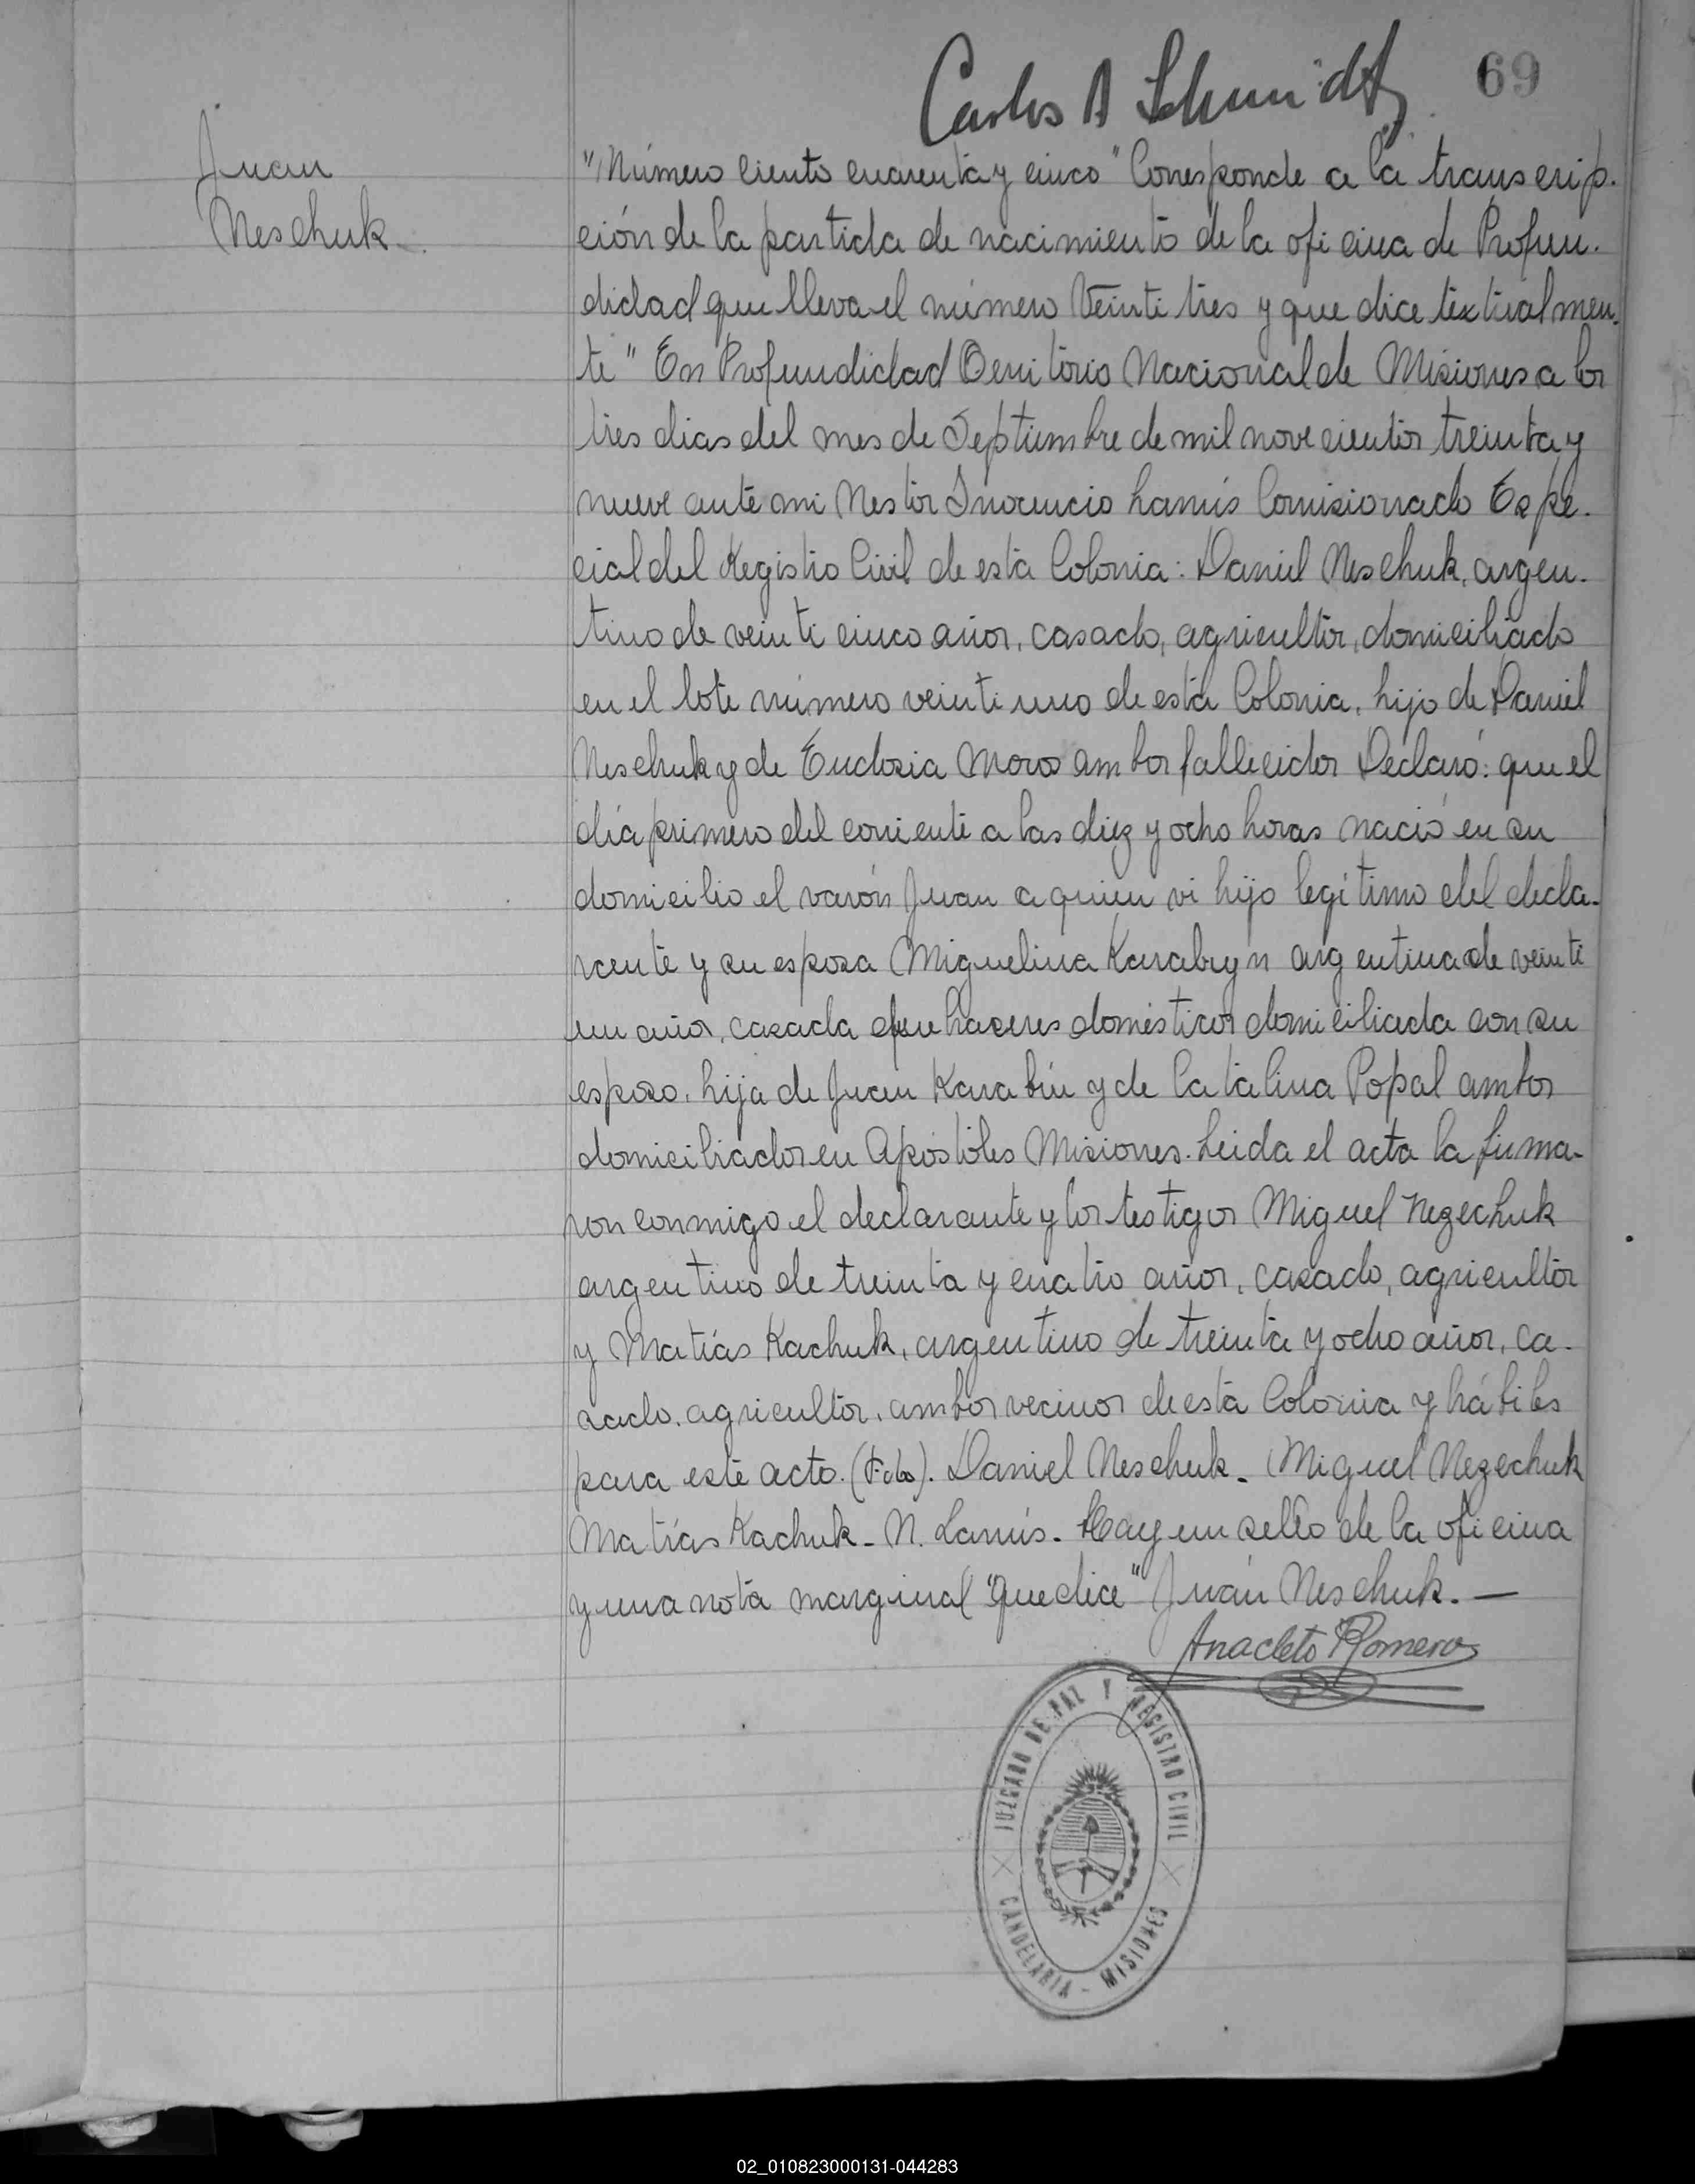 Carlos A Schmidt
69
Juan
Neschuk
"Número Ciento cuarenta y cinco" Corresponde a la transcrip-
ción de la partida de nacimiento de la oficina de Profun-
didad que lleva el número Veinti tres y que dice textualmen-
te" En Profundidad Territorio Nacional de Misiones a los
tres dias del mes de Septiembre de mil novecientos treinta y
nueve ante mi Nestor Inocencio Lanús Comisionado Espe-
cial del Registro Civil de esta Colonia: Daniel Neschuk, argen-
tino de veinti cinco años, casado, agricultor, domiciliado
en el lote número veinti uno de esta Colonia, hijo de Daniel
Neschuk y de Eudosia Moros ambos fallecidos Declaró: que el
día primero del corriente a las diez y ocho horas nació en su
domicilio el varón Juan a quien vi hijo legítimo del decla-
rante y su esposa Miguelina Karabyn argentina de veinti
un años, casada de quehaceres domésticos domiciliada con su
esposo, hija de Juan Karabin y de Catalina Popal ambos
domiciliados en Apóstoles Misiones. Leida el acta la firma-
ron conmigo el declarante y los testigos Miguel Nezechuk
argentino de treinta y cuatro años, casado, agricultor
y Matías Kachuk, argentino de treinta y ocho años, ca-
sado, agricultor, ambos vecinos de esta Colonia y hábiles
para este acto. (Fdo). Daniel Neschuk - Miguel Nezechuk
Matías Kachuk - N. Lanús - Hay un sello de la oficina
y una nota marginal "que dice" Juan Neschuk. —
Anacleto Romero
JUZGADO DE PAZ Y REGISTRO CIVIL
CANDELARIA - MISIONES
02_010823000131-044283